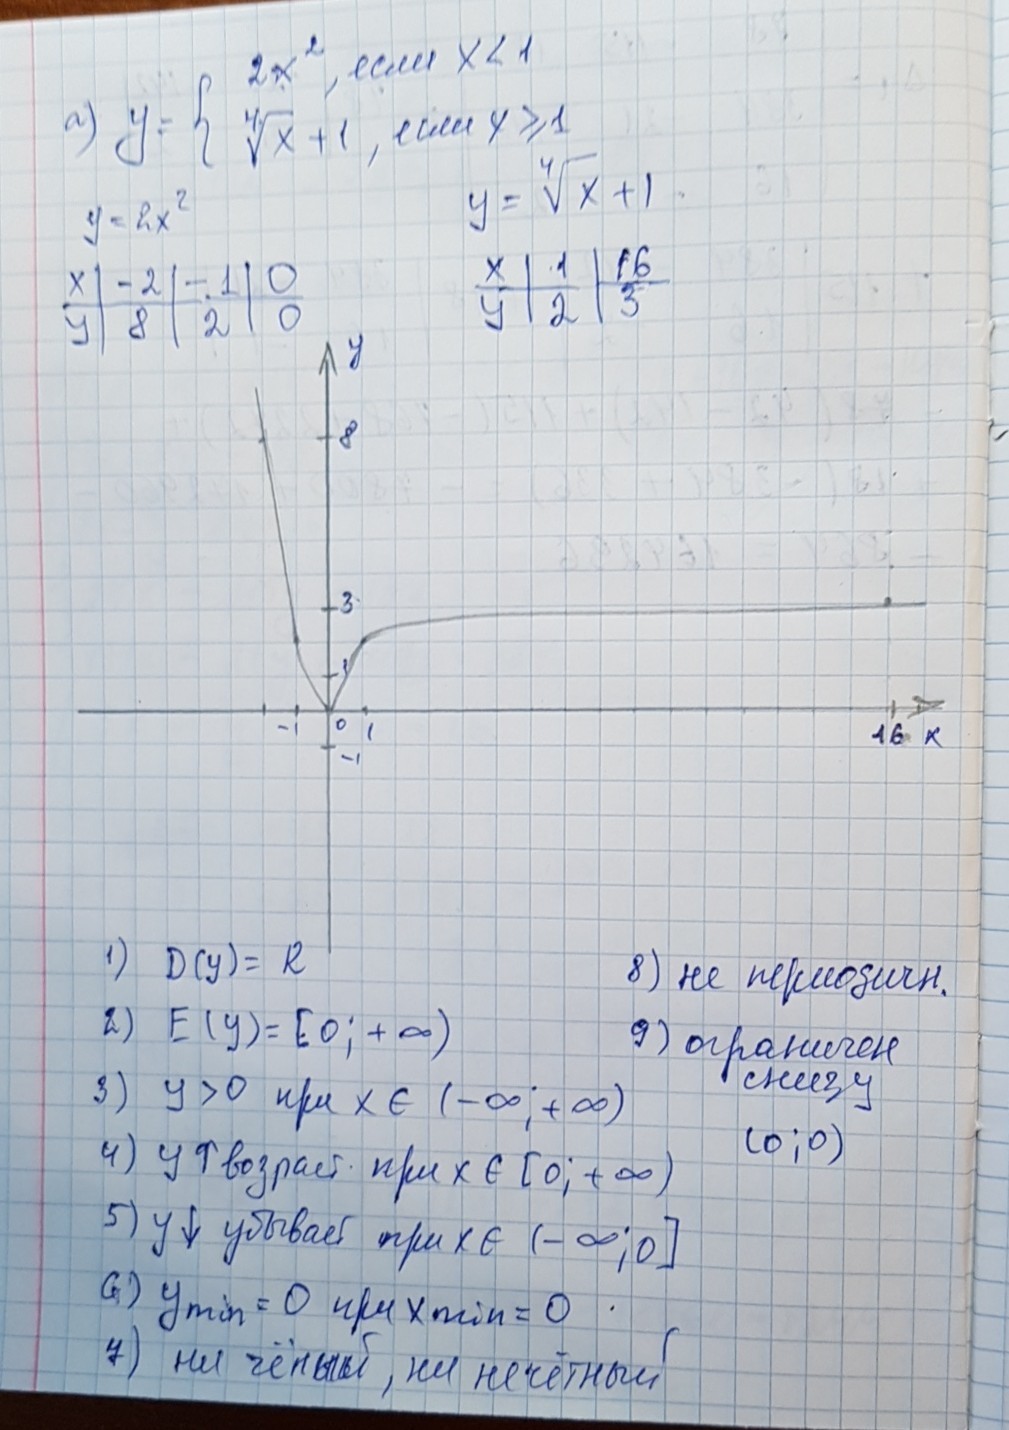 а) y = { 2x², если x < 1
⁴√x + 1, если x ≥ 1
y = 2x²
x | -2 | -1 | 0
y | 8 | 2 | 0
y = ⁴√x + 1
x | 1 | 16
y | 2 | 3
y
8
3
1
-1 0 1 16 x
-1
1) D(y) = R
2) E(y) = [0; +∞)
3) y > 0 при x ∈ (-∞; +∞)
4) y↑ возраст. при x ∈ [0; +∞)
5) y↓ убывает при x ∈ (-∞; 0]
6) ymin = 0 при xmin = 0
7) ни чётный, ни нечётный
8) не периодичн.
9) ограничен
снизу
(0; 0)